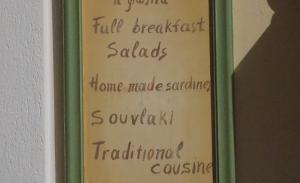 Full breakfast
Salads
Home made sardines
Souvlaki
Traditional
cousine